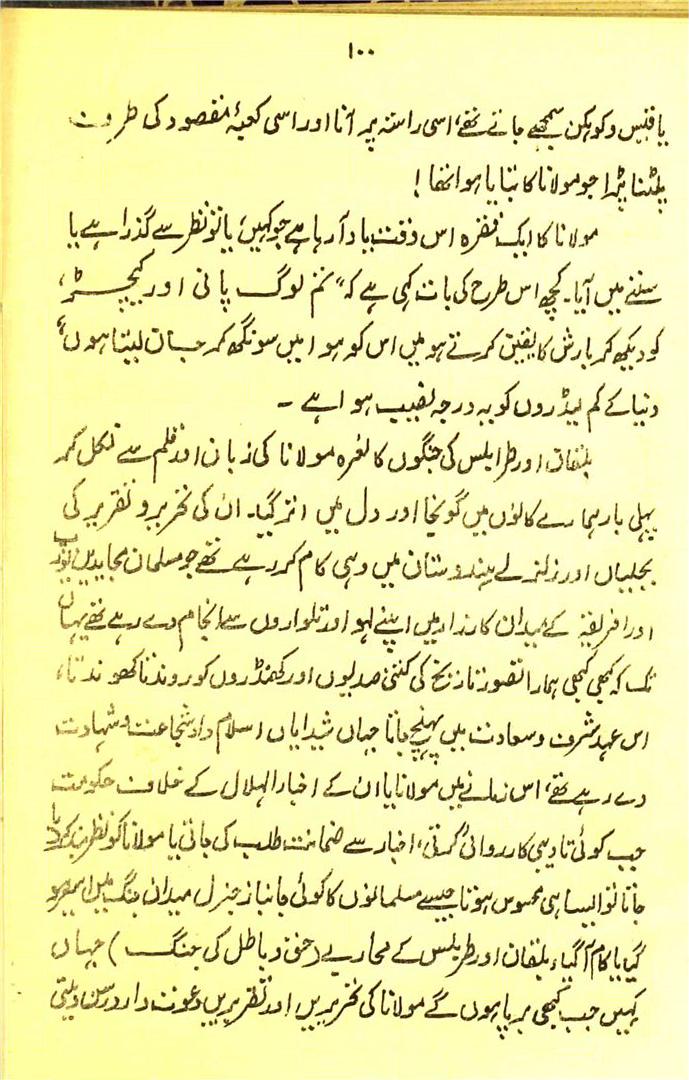 ۱۰۰
یا قیس و کوہکن سمجھے جاتے تھے، اسی راستہ پر آنا اور اسی کعبۂ مقصود کی طرف
پلٹنا پڑا جو مولانا کا بتایا ہوا تھا!
مولانا کا ایک فقرہ اس وقت یاد آ رہا ہے جو کہیں، یا تو نظر سے گذرا ہے یا
سننے میں آیا۔ کچھ اس طرح کی بات کہی ہے کہ "تم لوگ پانی اور کیچڑ،
کو دیکھ کر بارش کا یقین کرتے ہو میں اس کو ہوا میں سونگھ کر جان لیتا ہوں"
دنیا کے کم لیڈروں کو یہ درجہ نصیب ہوا ہے ۔
بلقان اور طرابلس کی جنگوں کا نعرہ مولانا کی زبان اور قلم سے نکل کر
پہلی بار ہمارے کانوں میں گونجا اور دل میں اتر گیا۔ ان کی تحریر و تقریر کی
بجلیاں اور زلزلے ہندوستان میں وہی کام کر رہے تھے جو مسلمان مجاہدین یورپ
اور افریقہ کے میدان کارزار میں اپنے لہو اور تلواروں سے انجام دے رہے تھے یہاں
تک کہ کبھی کبھی ہمارا تصور تاریخ کی کتنی صدیوں اور کھنڈروں کو روندتا کھوندتا،
اس عہد شرف و سعادت میں پہنچ جاتا جہاں شیدایان اسلام داد شجاعت و شہادت
دے رہے تھے، اس زمانے میں مولانا یا ان کے اخبار الہلال کے خلاف حکومت
جب کوئی تادیبی کارروائی کرتی، اخبار سے ضمانت طلب کی جاتی یا مولانا کو نظر بند کر دیا
جاتا تو ایسا ہی محسوس ہوتا جیسے مسلمانوں کا کوئی جانباز جنرل میدان جنگ میں اسیر ہو
گیا یا کام آ گیا، بلقان اور طربلس کے محاربے (حق و باطل کی جنگ) جہاں
کہیں جب کبھی برپا ہوں گے مولانا کی تحریریں اور تقریریں دعوت دار و رسن دیتی